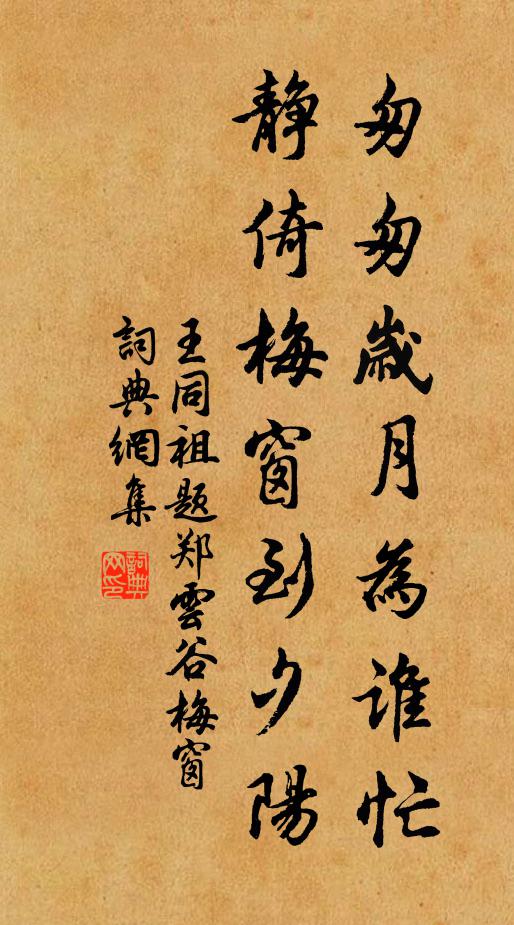 匆匆歲月為誰忙
静倚梅窗到夕陽
王同祖题郑雲谷梅窗
詞典網集
詞典网印